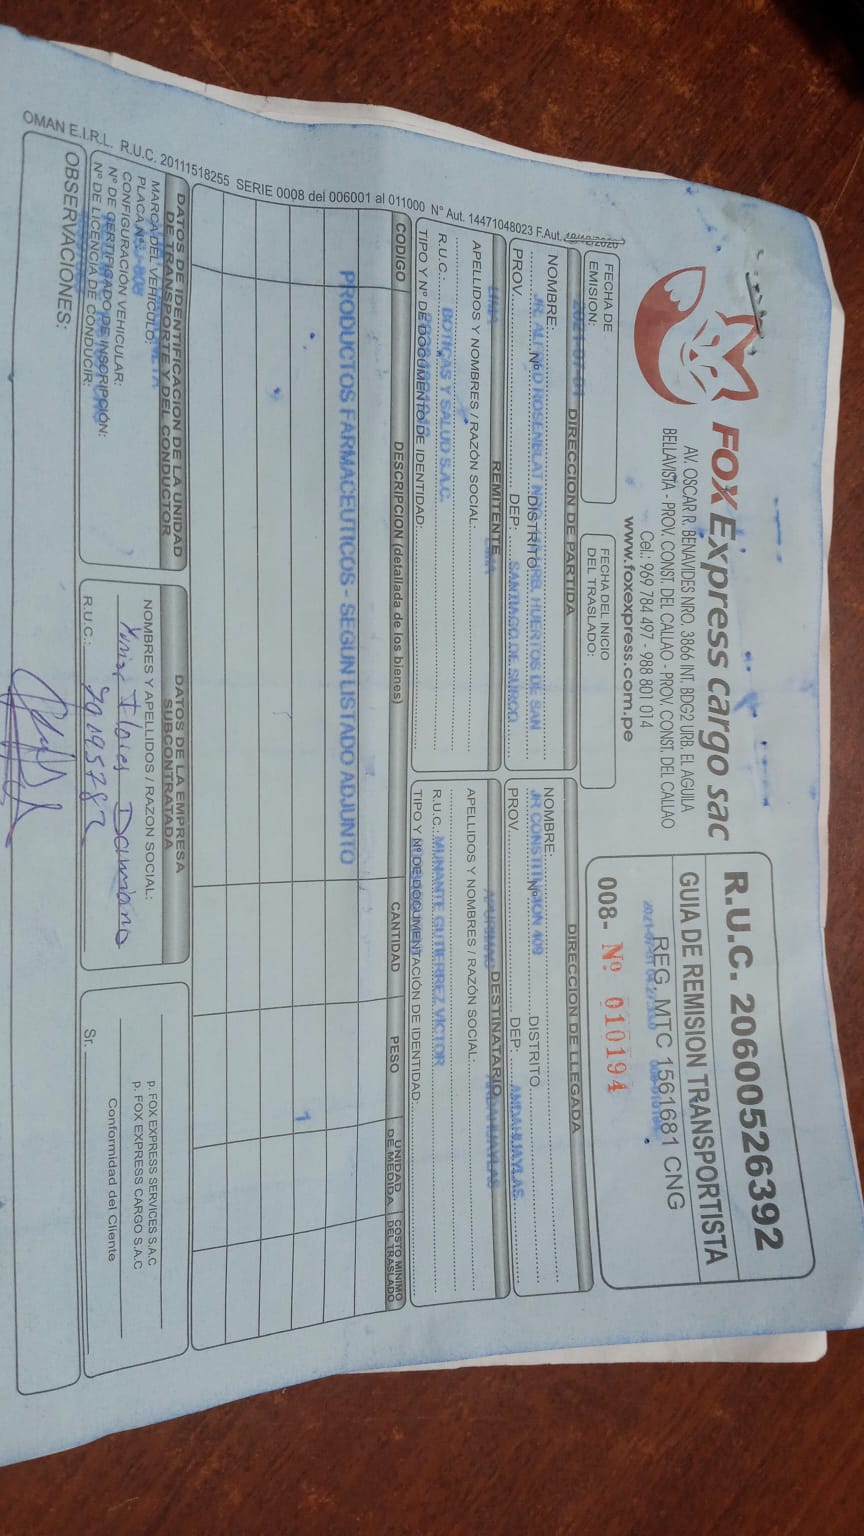 FOX Express cargo sac
AV. OSCAR R. BENAVIDES NRO. 3866 INT. BDG2 URB. EL AGUILA
BELLAVISTA - PROV. CONST. DEL CALLAO - PROV. CONST. DEL CALLAO
Cel.: 969 784 497 - 988 801 014
www.foxexpress.com.pe
R.U.C. 20600526392
GUIA DE REMISION TRANSPORTISTA
REG. MTC 1561681 CNG
008- Nº 010194
FECHA DE EMISION:
2021-07-01
FECHA DEL INICIO DEL TRASLADO:
DIRECCION DE PARTIDA
NOMBRE: Nº DISTRITO
HUERTOS DE SAN
PROV. DEP: SANTIAGO DE SURCO
LIMA
DIRECCION DE LLEGADA
NOMBRE: Nº DISTRITO
JR CONSTITUCION 409
PROV. DEP: ANDAHUAYLAS
APURIMAC ANDAHUAYLAS
REMITENTE
APELLIDOS Y NOMBRES / RAZÓN SOCIAL:
BOTICAS Y SALUD S.A.C.
R.U.C.:
TIPO Y Nº DE DOCUMENTO DE IDENTIDAD:
DESTINATARIO
APELLIDOS Y NOMBRES / RAZÓN SOCIAL:
R.U.C.: MUNANTE GUTIERREZ VICTOR
TIPO Y Nº DE DOCUMENTACIÓN DE IDENTIDAD:
CODIGO DESCRIPCION (detallada de los bienes) CANTIDAD PESO UNIDAD DE MEDIDA COSTO MINIMO DEL TRASLADO
PRODUCTOS FARMACEUTICOS - SEGUN LISTADO ADJUNTO
1
DATOS DE IDENTIFICACION DE LA UNIDAD
DE TRANSPORTE Y DEL CONDUCTOR
MARCA DEL VEHICULO:
PLACA Nº:
CONFIGURACIÓN VEHICULAR:
Nº DE CERTIFICADO DE INSCRIPCIÓN:
Nº DE LICENCIA DE CONDUCIR:
DATOS DE LA EMPRESA
SUBCONTRATADA
NOMBRES Y APELLIDOS / RAZON SOCIAL:
Flores Damiano
R.U.C.:
p. FOX EXPRESS SERVICES S.A.C
p. FOX EXPRESS CARGO S.A.C
Conformidad del Cliente
Sr.
OBSERVACIONES:
OMAN E.I.R.L. R.U.C. 20111518255 SERIE 0008 del 006001 al 011000 N° Aut. 14471048023 F.Aut.